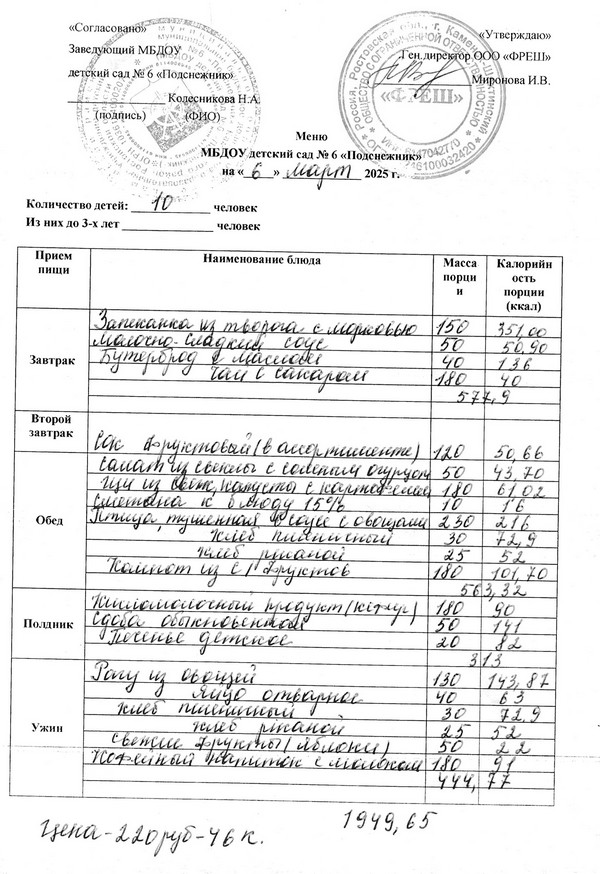 «Согласовано»
«Утверждаю»
Заведующий МБДОУ
Ген.директор ООО «ФРЕШ»
детский сад № 6 «Подснежник»
Миронова И.В.
Колесникова Н.А.
(подпись) (ФИО)
«ФРЕШ»
Меню
МБДОУ детский сад № 6 «Подснежник»
на « 6 » март 2025 г.
Количество детей: 10 человек
Из них до 3-х лет человек
Прием пищи Наименование блюда Масса порции Калорийность порции (ккал)
Завтрак
Запеканка из творога с морковью 150 351,00
Молочно-сладкий соус 50 50,90
Бутерброд с маслом 40 136
Чай с сахаром 180 40
577,9
Второй завтрак
Сок фруктовый (в ассортименте) 120 50,66
Обед
Салат из свеклы с соленым огурцом 50 43,70
Щи из свеж. капусты с картофелем 180 61,02
Сметана к блюду 15% 10 16
Птица, тушенная в соусе с овощами 230 216
Хлеб пшеничный 30 72,9
Хлеб ржаной 25 52
Компот из с/фруктов 180 101,70
563,32
Полдник
Кисломолочный продукт (кефир) 180 90
Сдоба обыкновенная 50 141
Печенье детское 20 82
313
Ужин
Рагу из овощей 130 143,87
Яйцо отварное 40 63
Хлеб пшеничный 30 72,9
Хлеб ржаной 25 52
Свежие фрукты (яблоки) 50 22
Кофейный напиток с молоком 180 91
444,77
1949,65
Цена-220руб-46 к.